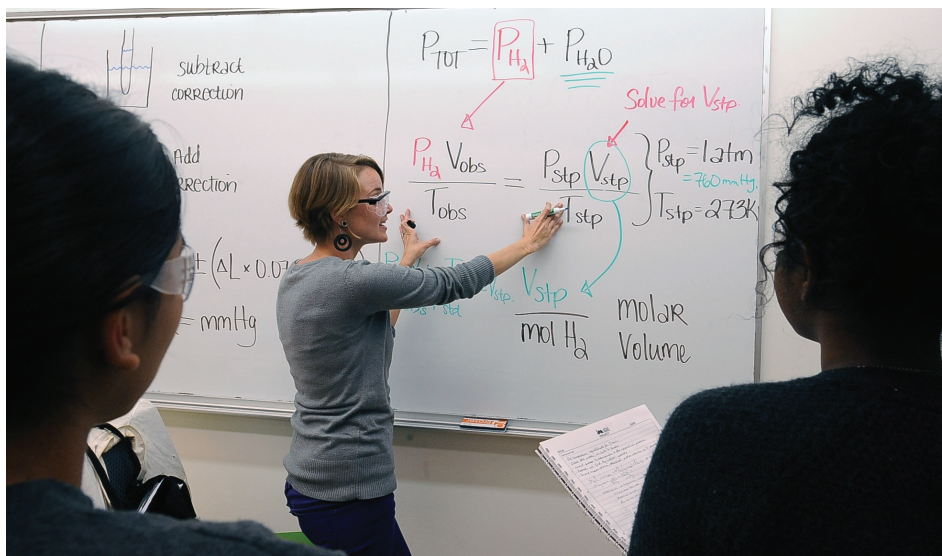 subtract
correction
Add
± (ΔL × 0.07
= mmHg
P_TOT = P_H₂ + P_H₂O
Solve for V_stp.
P_H₂ V_obs / T_obs = P_stp V_stp / T_stp
P_stp = 1 atm
= 760 mmHg.
T_stp = 273K
V_stp / mol H₂
molar
volume